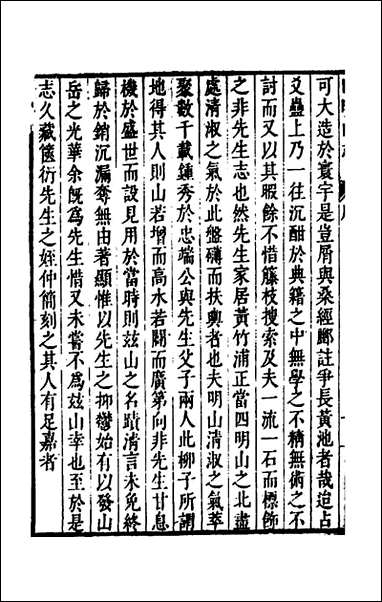 可大造於寰宇是豈屑與桑經酈註爭長黃池者哉迨占
爻蠱上乃一往沉酣於典籍之中無學之不精無術之不
討而又以其暇餘不惜籐枝搜索及夫一流一石而標飾
之非先生志也然先生家居黃竹浦正當四明山之北盡
處清淑之氣於此盤礴而扶輿者也夫明山清淑之氣萃
聚數千載鍾秀於忠端公與先生父子兩人此柳子所謂
地得其人則山若增而高水若闢而廣第向非先生甘息
機於盛世而設見用於當時則茲山之名蹟清言未免終
歸於銷沉漏奪無由著顯惟以先生之抑鬱始有以發山
岳之光華余旣爲先生惜又未嘗不爲茲山幸也至於是
志久藏篋衍先生之姪仲簡刻之其人有足嘉者